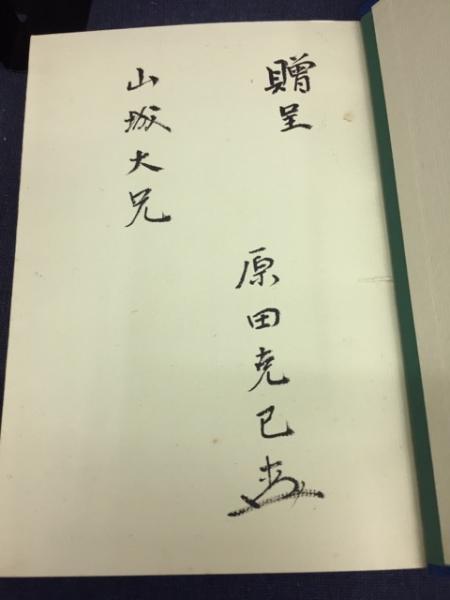 贈呈
原田克己
山城大兄